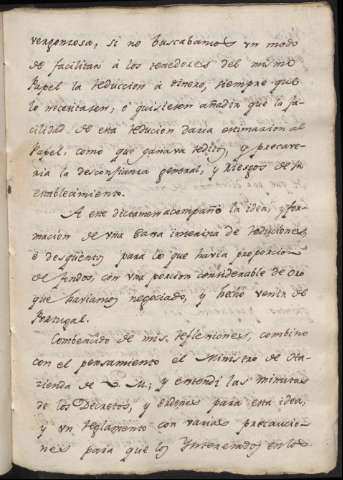 vergonzosa, si no buscabamos vn modo
de facilitar à los tenedores del mismo
Papel la reduccion à dinero, siempre que
lo necesitasen, ò quisiesen añadir que la fa-
cilidad de esta reducion daria estimacion al
Papel, como que ganava redito, y precave-
ria la desconfianza general, y riesgos de su
establecimiento.
A este dictamen acompañò la idea, y for-
macion de vna Caxa interina de reduciones
ò desquentos para lo que havia proporcion
de fondos, con vna porcion considerable de oro
que haviamos negociado, y hecho venir de
Portugal.
Combencido de mis reflexiones, combino
con el pensamiento el Ministro de Ha-
zienda de Su; y entendi las minutas
de los Decretos, y ordenes para esta idea,
y vn reglamento con varias precaucio-
nes para que los Ynteresados en lo